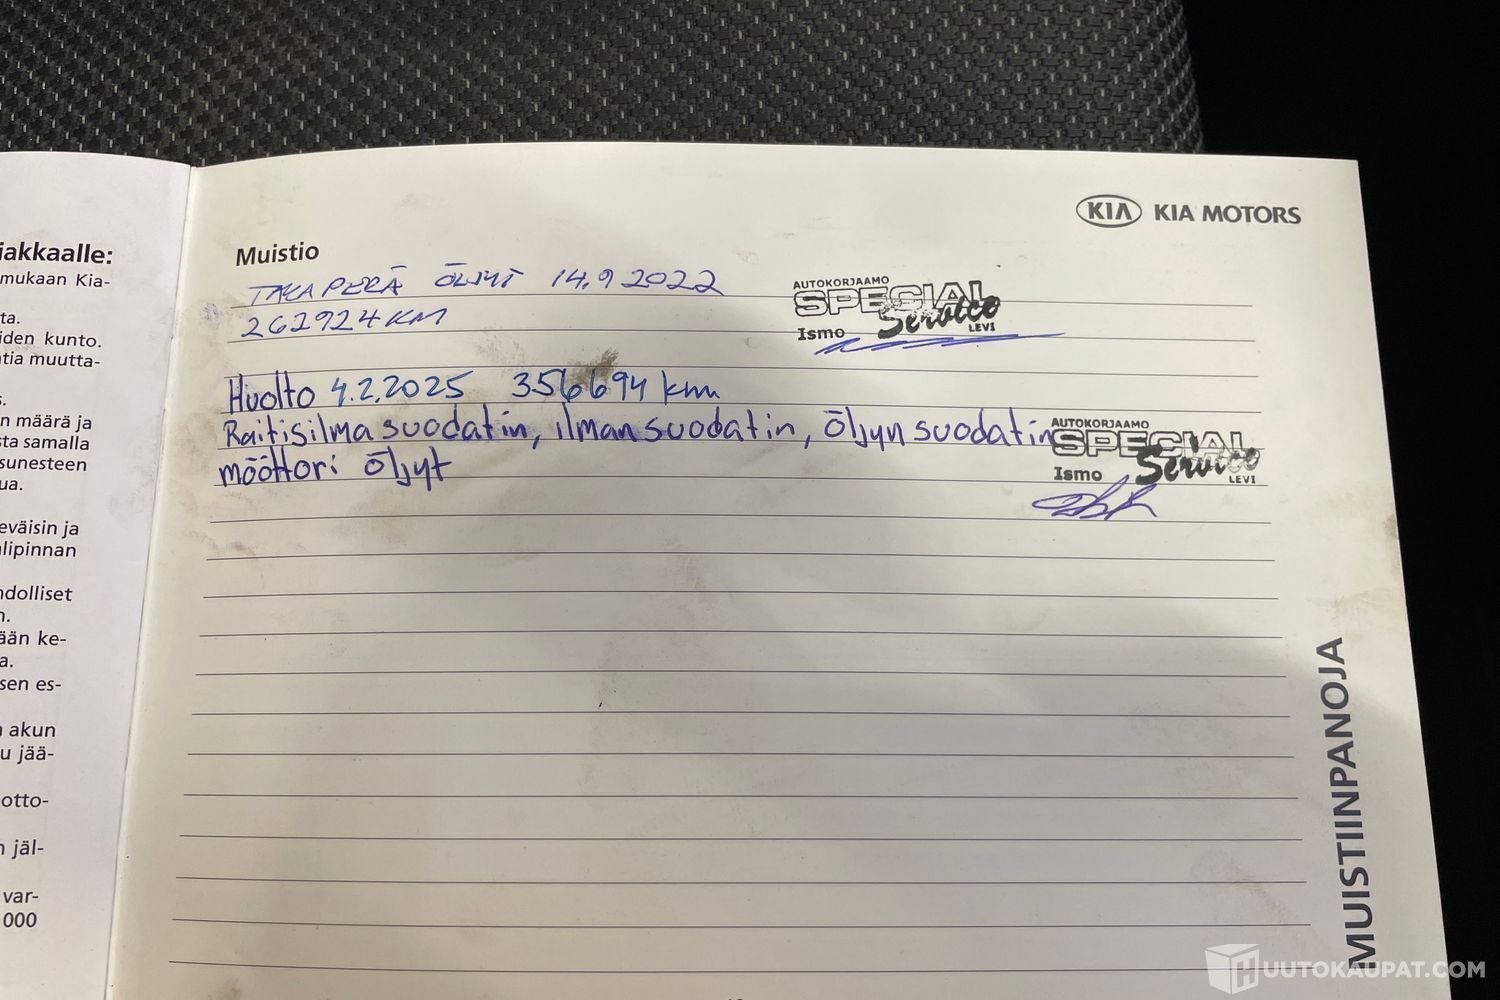 iakkaalle:
mukaan Kia-
ta.
iden kunto.
tia muutta-
s.
n määrä ja
sta samalla
sunesteen
ua.
eväisin ja
lipinnan
hdolliset
n.
ään ke-
a.
sen es-
n akun
u jää-
otto-
n jäl-
var-
000
KIA KIA MOTORS
Muistio
TAKAPERÄ ÖLJYT 14.9 2022
262924 KM
AUTOKORJAAMO
SPECIAL
Service
Ismo LEVI
Huolto 4.2.2025 356694 km
Raitisilmasuodatin, ilmansuodatin, öljynsuodatin
möõttori öljyt
AUTOKORJAAMO
SPECIAL
Service
Ismo LEVI
MUISTIINPANOJA
HUUTOKAUPAT.COM